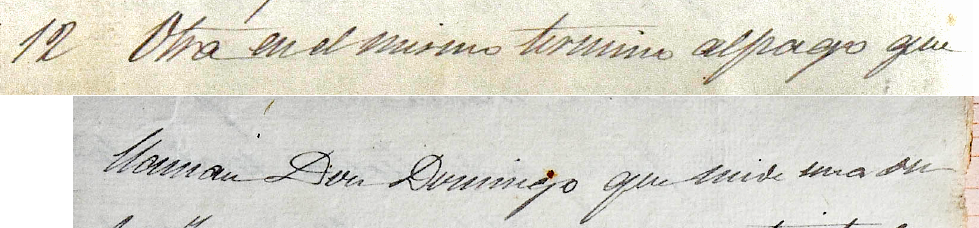 12 Otra en el mismo termino al pago que
llaman Don Domingo que mide una on